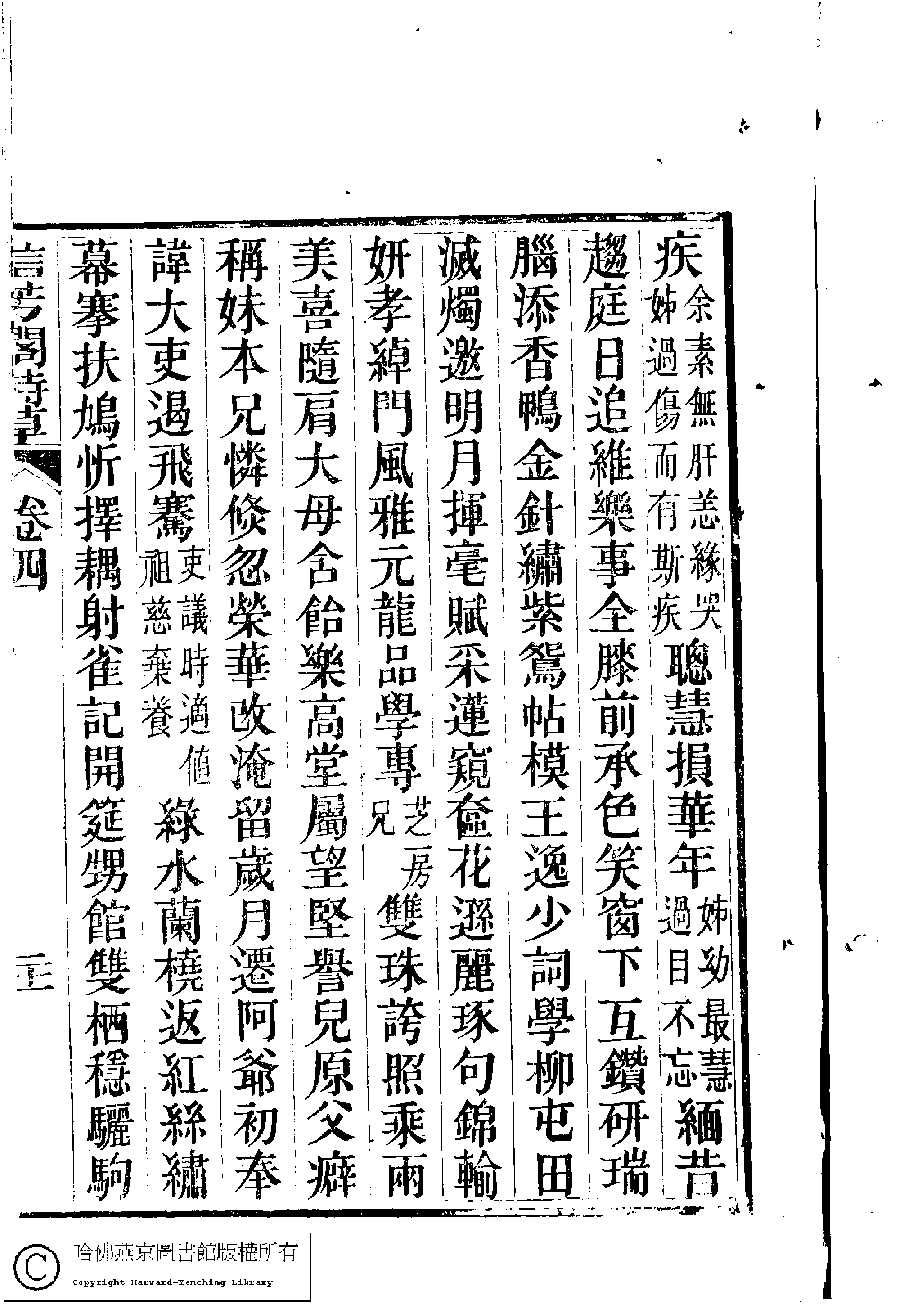 疾余素無肝恙緣哭姊過傷而有斯疾聰慧損華年姊幼最慧過目不忘緬昔
趨庭日追維樂事全膝前承色笑窗下互鑽研瑞
腦添香鴨金針繡紫鴛帖模王逸少詞學柳屯田
滅燭邀明月揮毫賦采蓮窺奩花遜麗琢句錦輸
妍孝綽門風雅元龍品學專芝房兄雙珠誇照乘兩
美喜隨肩大母含飴樂高堂屬望堅譽兒原父癖
稱妹本兄憐倐忽榮華改淹留歲月遷阿爺初奉
諱大吏遏飛騫吏議時適值祖慈棄養綠水蘭橈返紅絲繡
幕搴扶鳩忻擇耦射雀記開筵甥館雙栖穩驪駒
信芳閣詩草 卷四 二十一
哈佛燕京圖書館版權所有
Copyright Harvard-Yenching Library